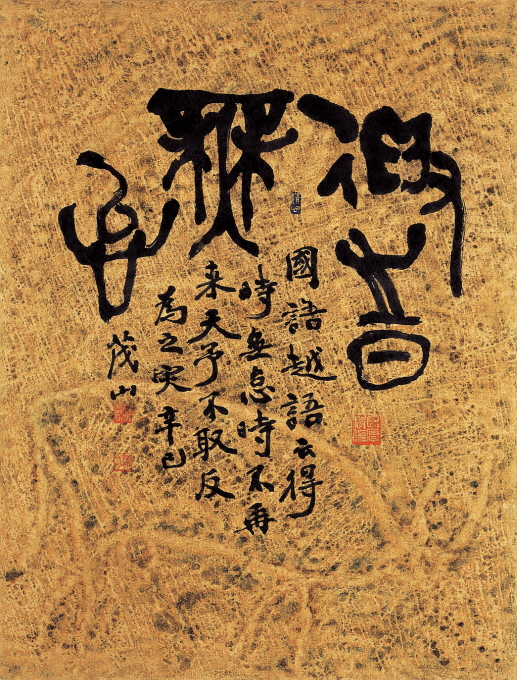 得時
無
怠
國語越語云得
時無怠時不再
来天予不取反
為之災 辛巳
茂山